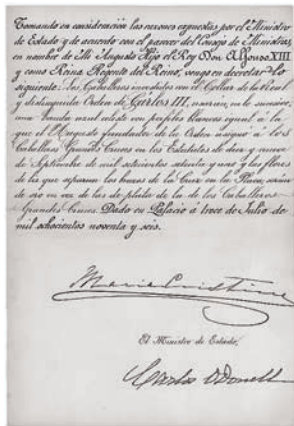 Tomando en consideración las razones expuestas por el Ministro
de Estado y de acuerdo con el parecer del Consejo de Ministros,
en nombre de Mi Augusto Hijo el Rey Don Alfonso XIII
y como Reina Regente del Reino, vengo en decretar lo
siguiente: Los Caballeros investidos con el Collar de la Real
y distinguida Orden de Carlos III, usarán, en lo sucesivo,
una banda azul celeste con perfiles blancos igual á la
que el Augusto fundador de la Orden asignó á los
Caballeros Grandes Cruces en los Estatutos de diez y nueve
de Septiembre de mil setecientos setenta y uno y las flores
de lis que separan los brazos de la Cruz en la Placa, serán
de oro en vez de las de plata de la de los Caballeros
Grandes Cruces. Dado en Palacio á trece de Julio de
mil ochocientos noventa y seis.
María Cristina
El Ministro de Estado,
Carlos O'Donell